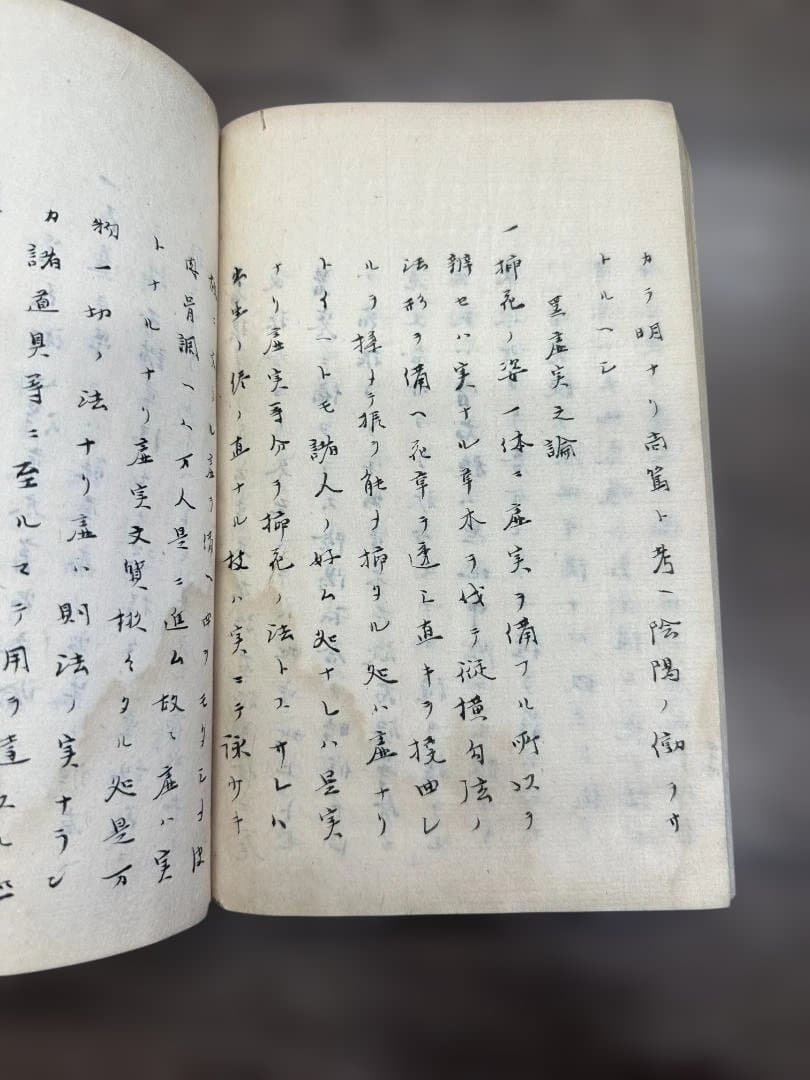 カラ明ナリ尚篤ト考ヘ陰陽ノ働ヲサ
トルヘシ
虚実之論
一挿花ノ姿一体ニ虚実ヲ備フル所以ヲ
辨セハ実ナル草木ヲ伐テ従横勾弦ノ
法形ヲ備ヘ花葉ヲ透シ直キヲ撓曲シ
ルヲ揉メテ振リ能ク挿タル処ハ虚ナリ
トイヘトモ諸人ノ好ム処ナレハ是実
ナリ虚実等分ヲ挿花ノ法トスサレハ
出生ノ侭ノ直ナル枝ハ実ニテ詠少キ
肉骨調ヘハ万人是ニ進ム故ニ虚ハ実
トナルナリ虚実文質
タル処是万
物一切ノ法ナリ虚ハ則法ノ実ナラン
カ諸道具等ニ至ルマテ用ヲ達スル